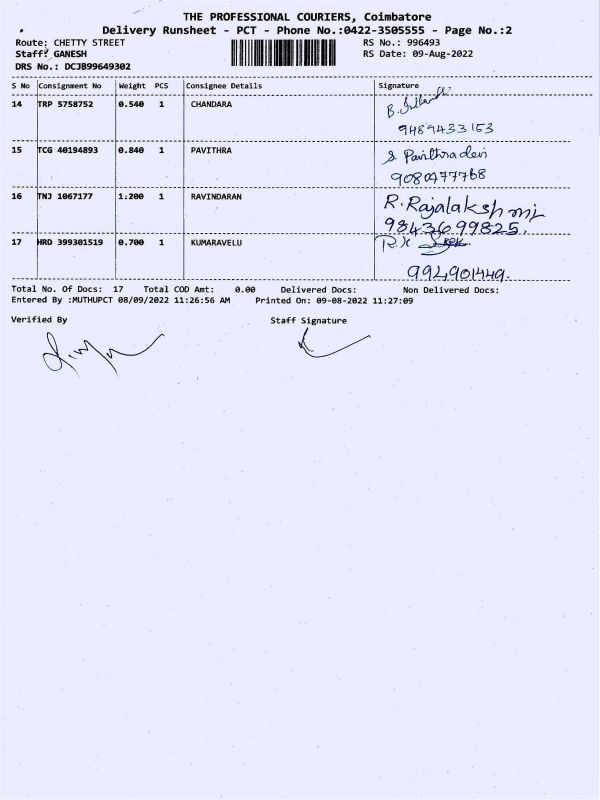 THE PROFESSIONAL COURIERS, Coimbatore
Delivery Runsheet - PCT - Phone No.:0422-3505555 - Page No.:2
Route: CHETTY STREET RS No.: 996493
Staff: GANESH RS Date: 09-Aug-2022
DRS No.: DCJB99649302
S No Consignment No Weight PCS Consignee Details Signature
14 TRP 5758752 0.540 1 CHANDARA B.
9489433153
15 TCG 40194893 0.840 1 PAVITHRA S Pavithradevi
9080977768
16 TNJ 1067177 1.200 1 RAVINDARAN R. Rajalakshmi
9843699825.
17 HRD 399301519 0.700 1 KUMARAVELU R.K
994901449.
Total No. Of Docs: 17 Total COD Amt: 0.00 Delivered Docs: Non Delivered Docs:
Entered By :MUTHUPCT 08/09/2022 11:26:56 AM Printed On: 09-08-2022 11:27:09
Verified By Staff Signature